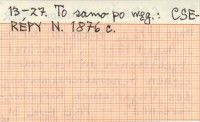 13-27. To samo po wzg.: CSE-
RÉPY N. 1876 c.